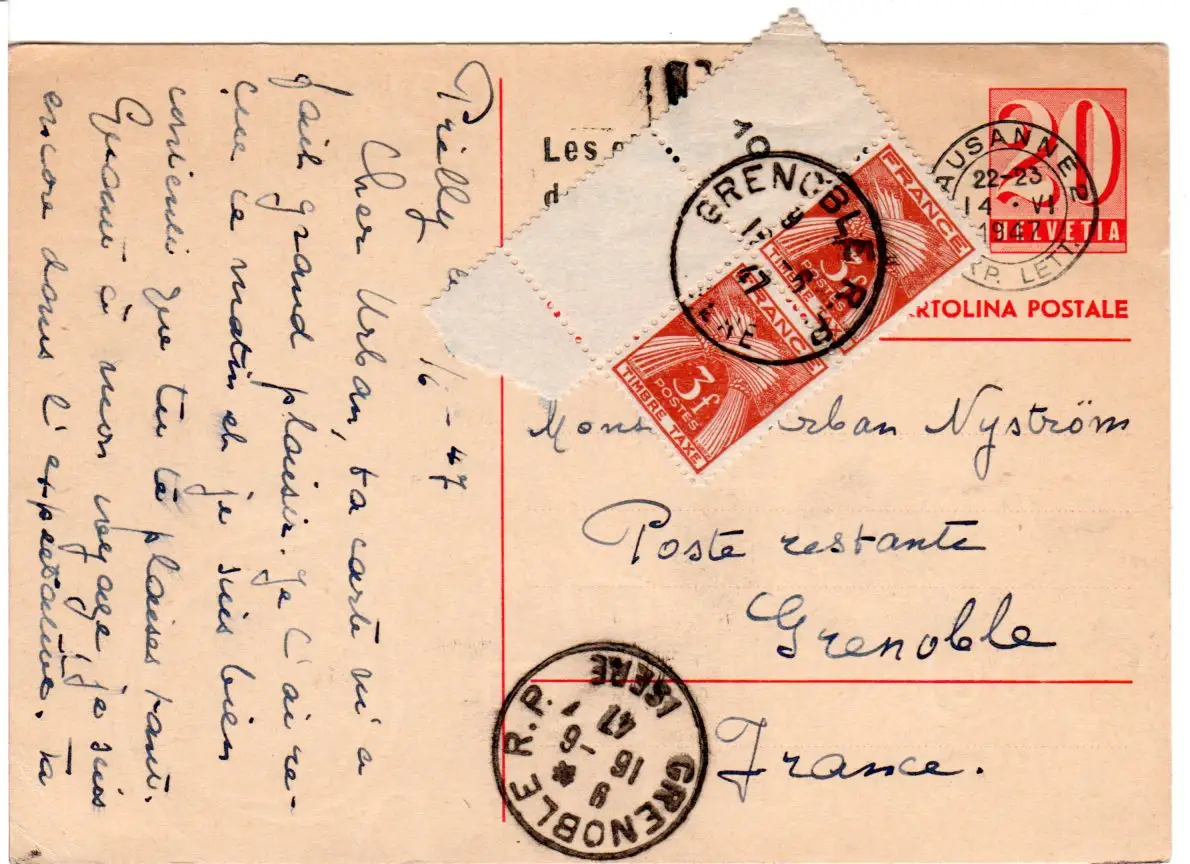 Prilly le /6 – 47
Cher Urban, ta carte m'a
fait grand plaisir. Je l'ai re-
çue ce matin et je suis bien
contente que tu te plaises tant.
Quant à mon voyage je suis
encore dans l'expectative. Ta
Les
d
10
GRENOBLE R.P.
9
15 -6
47
ISERE
FRANCE
3f
POSTES
TIMBRE TAXE
FRANCE
3f
POSTES
TIMBRE TAXE
20
HELVETIA
LAUSANNE 2
22-23
14. VI
1947
EXP. LETT.
CARTOLINA POSTALE
Mons Urban Nyström
Poste restante
Grenoble
France.
GRENOBLE R.P.
9 *
15 -6
47
ISERE